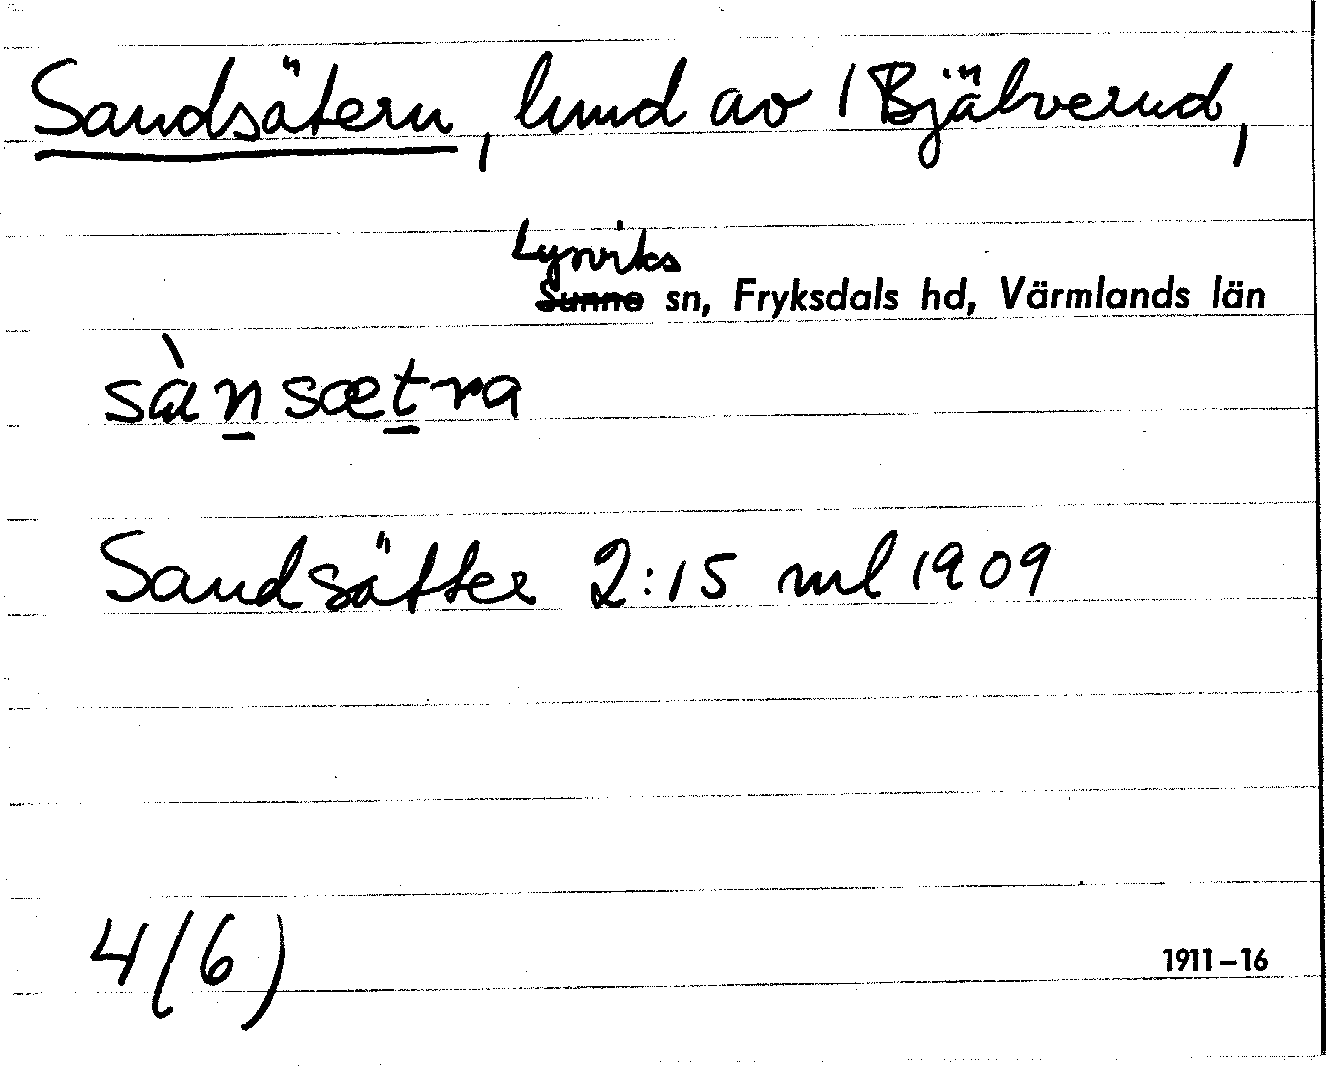 Sandsätern, lund av 1 Bjälverud,
Lysviks
Sunne sn, Fryksdals hd, Värmlands län
sànsætra
Sandsätter 2:15 ml 1909
4(6)
1911–16